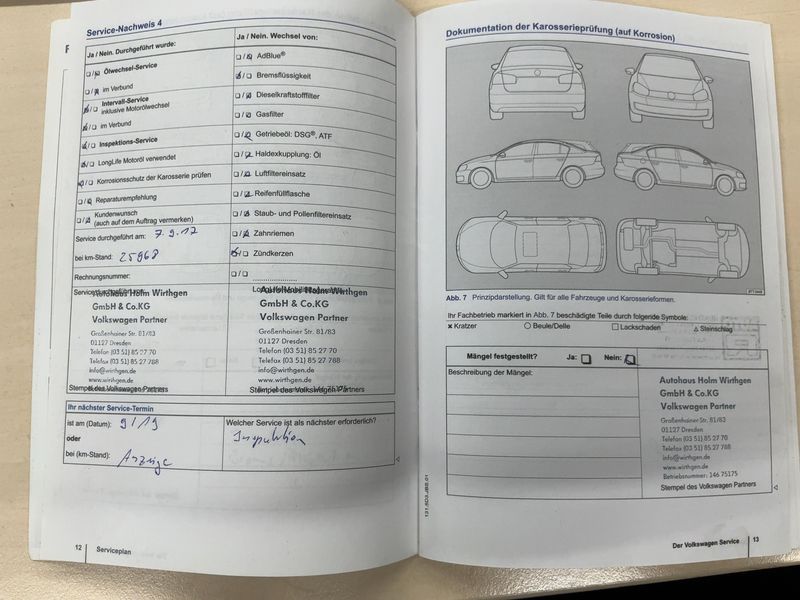 Service-Nachweis 4
Ja / Nein. Durchgeführt wurde:
Ölwechsel-Service
im Verbund
Intervall-Service
inklusive Motorölwechsel
im Verbund
Inspektions-Service
LongLife Motoröl verwendet
Korrosionsschutz der Karosserie prüfen
Reparaturempfehlung
Kundenwunsch
(auch auf dem Auftrag vermerken)
Service durchgeführt am: 7.9.17
bei km-Stand: 25968
Rechnungsnummer:
Ja / Nein. Wechsel von:
AdBlue®
Bremsflüssigkeit
Dieselkraftstofffilter
Gasfilter
Getriebeöl: DSG®, ATF
Haldexkupplung: Öl
Luftfiltereinsatz
Reifenfüllflasche
Staub- und Pollenfiltereinsatz
Zahnriemen
Zündkerzen
Autohaus Holm Wirthgen
GmbH & Co.KG
Volkswagen Partner
Großenhainer Str. 81/83
01127 Dresden
Telefon (03 51) 85 27 70
Telefax (03 51) 85 27 788
info@wirthgen.de
www.wirthgen.de
Stempel des Volkswagen Partners
Autohaus Holm Wirthgen
GmbH & Co.KG
Volkswagen Partner
Großenhainer Str. 81/83
01127 Dresden
Telefon (03 51) 85 27 70
Telefax (03 51) 85 27 788
info@wirthgen.de
www.wirthgen.de
Stempel des Volkswagen Partners
Ihr nächster Service-Termin
ist am (Datum): 9/19
oder
bei (km-Stand): Anzeige
Welcher Service ist als nächster erforderlich?
Inspektion
12 Serviceplan
Dokumentation der Karosserieprüfung (auf Korrosion)
Abb. 7 Prinzipdarstellung. Gilt für alle Fahrzeuge und Karosserieformen.
Ihr Fachbetrieb markiert in Abb. 7 beschädigte Teile durch folgende Symbole:
Kratzer Beule/Delle Lackschaden Steinschlag
Mängel festgestellt? Ja: Nein:
Beschreibung der Mängel:
Autohaus Holm Wirthgen
GmbH & Co.KG
Volkswagen Partner
Großenhainer Str. 81/83
01127 Dresden
Telefon (03 51) 85 27 70
Telefax (03 51) 85 27 788
info@wirthgen.de
www.wirthgen.de
Betriebsnummer: 146 75175
Stempel des Volkswagen Partners
131.5D3.JBB.01
Der Volkswagen Service 13